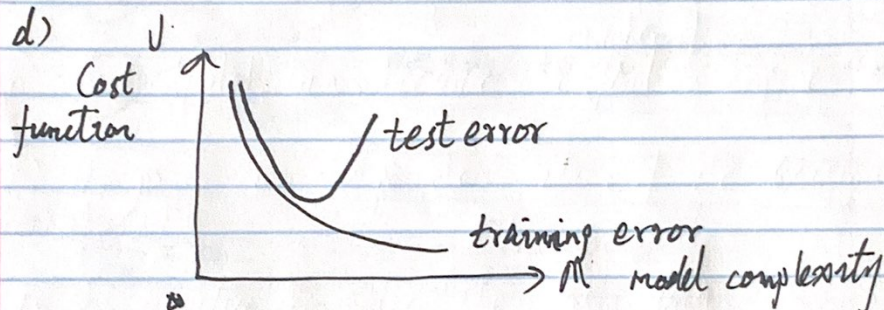 d) J
Cost
function
test error
training error
M model complexity